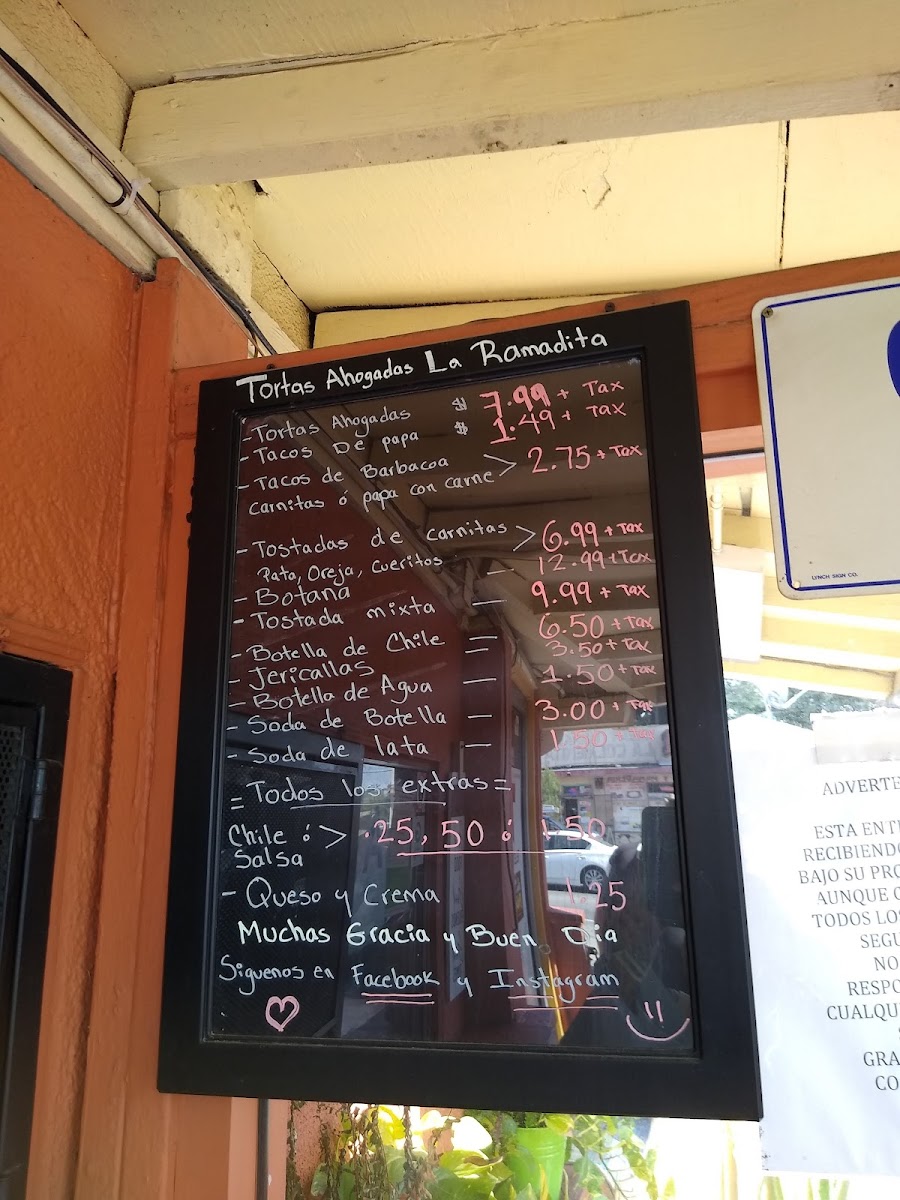 Tortas Ahogadas La Ramadita
- Tortas Ahogadas $ 7.99 + Tax
- Tacos De papa $ 1.49 + Tax
- Tacos de Barbacoa > 2.75 + Tax
carnitas ó papa con carne
- Tostadas de carnitas > 6.99 + Tax
Pata, Oreja, Cueritos
- Botana — 12.99 + Tax
- Tostada mixta — 9.99 + Tax
- Botella de Chile = 6.50 + Tax
- Jericallas 3.50 + Tax
- Botella de Agua — 1.50 + Tax
- Soda de Botella — 3.00 + Tax
- Soda de lata — 1.50 + Tax
= Todos los extras =
Chile ó > .25, 50 ó 1.50
Salsa
- Queso y Crema 1.25
Muchas Gracia y Buen Dia
Siguenos en Facebook y Instagram
LYNCH SIGN CO.
ADVERTE
ESTA ENT
RECIBIENDO
BAJO SU PRO
AUNQUE
TODOS LO
SEGU
NO
RESPO
CUALQU
GRA
CO